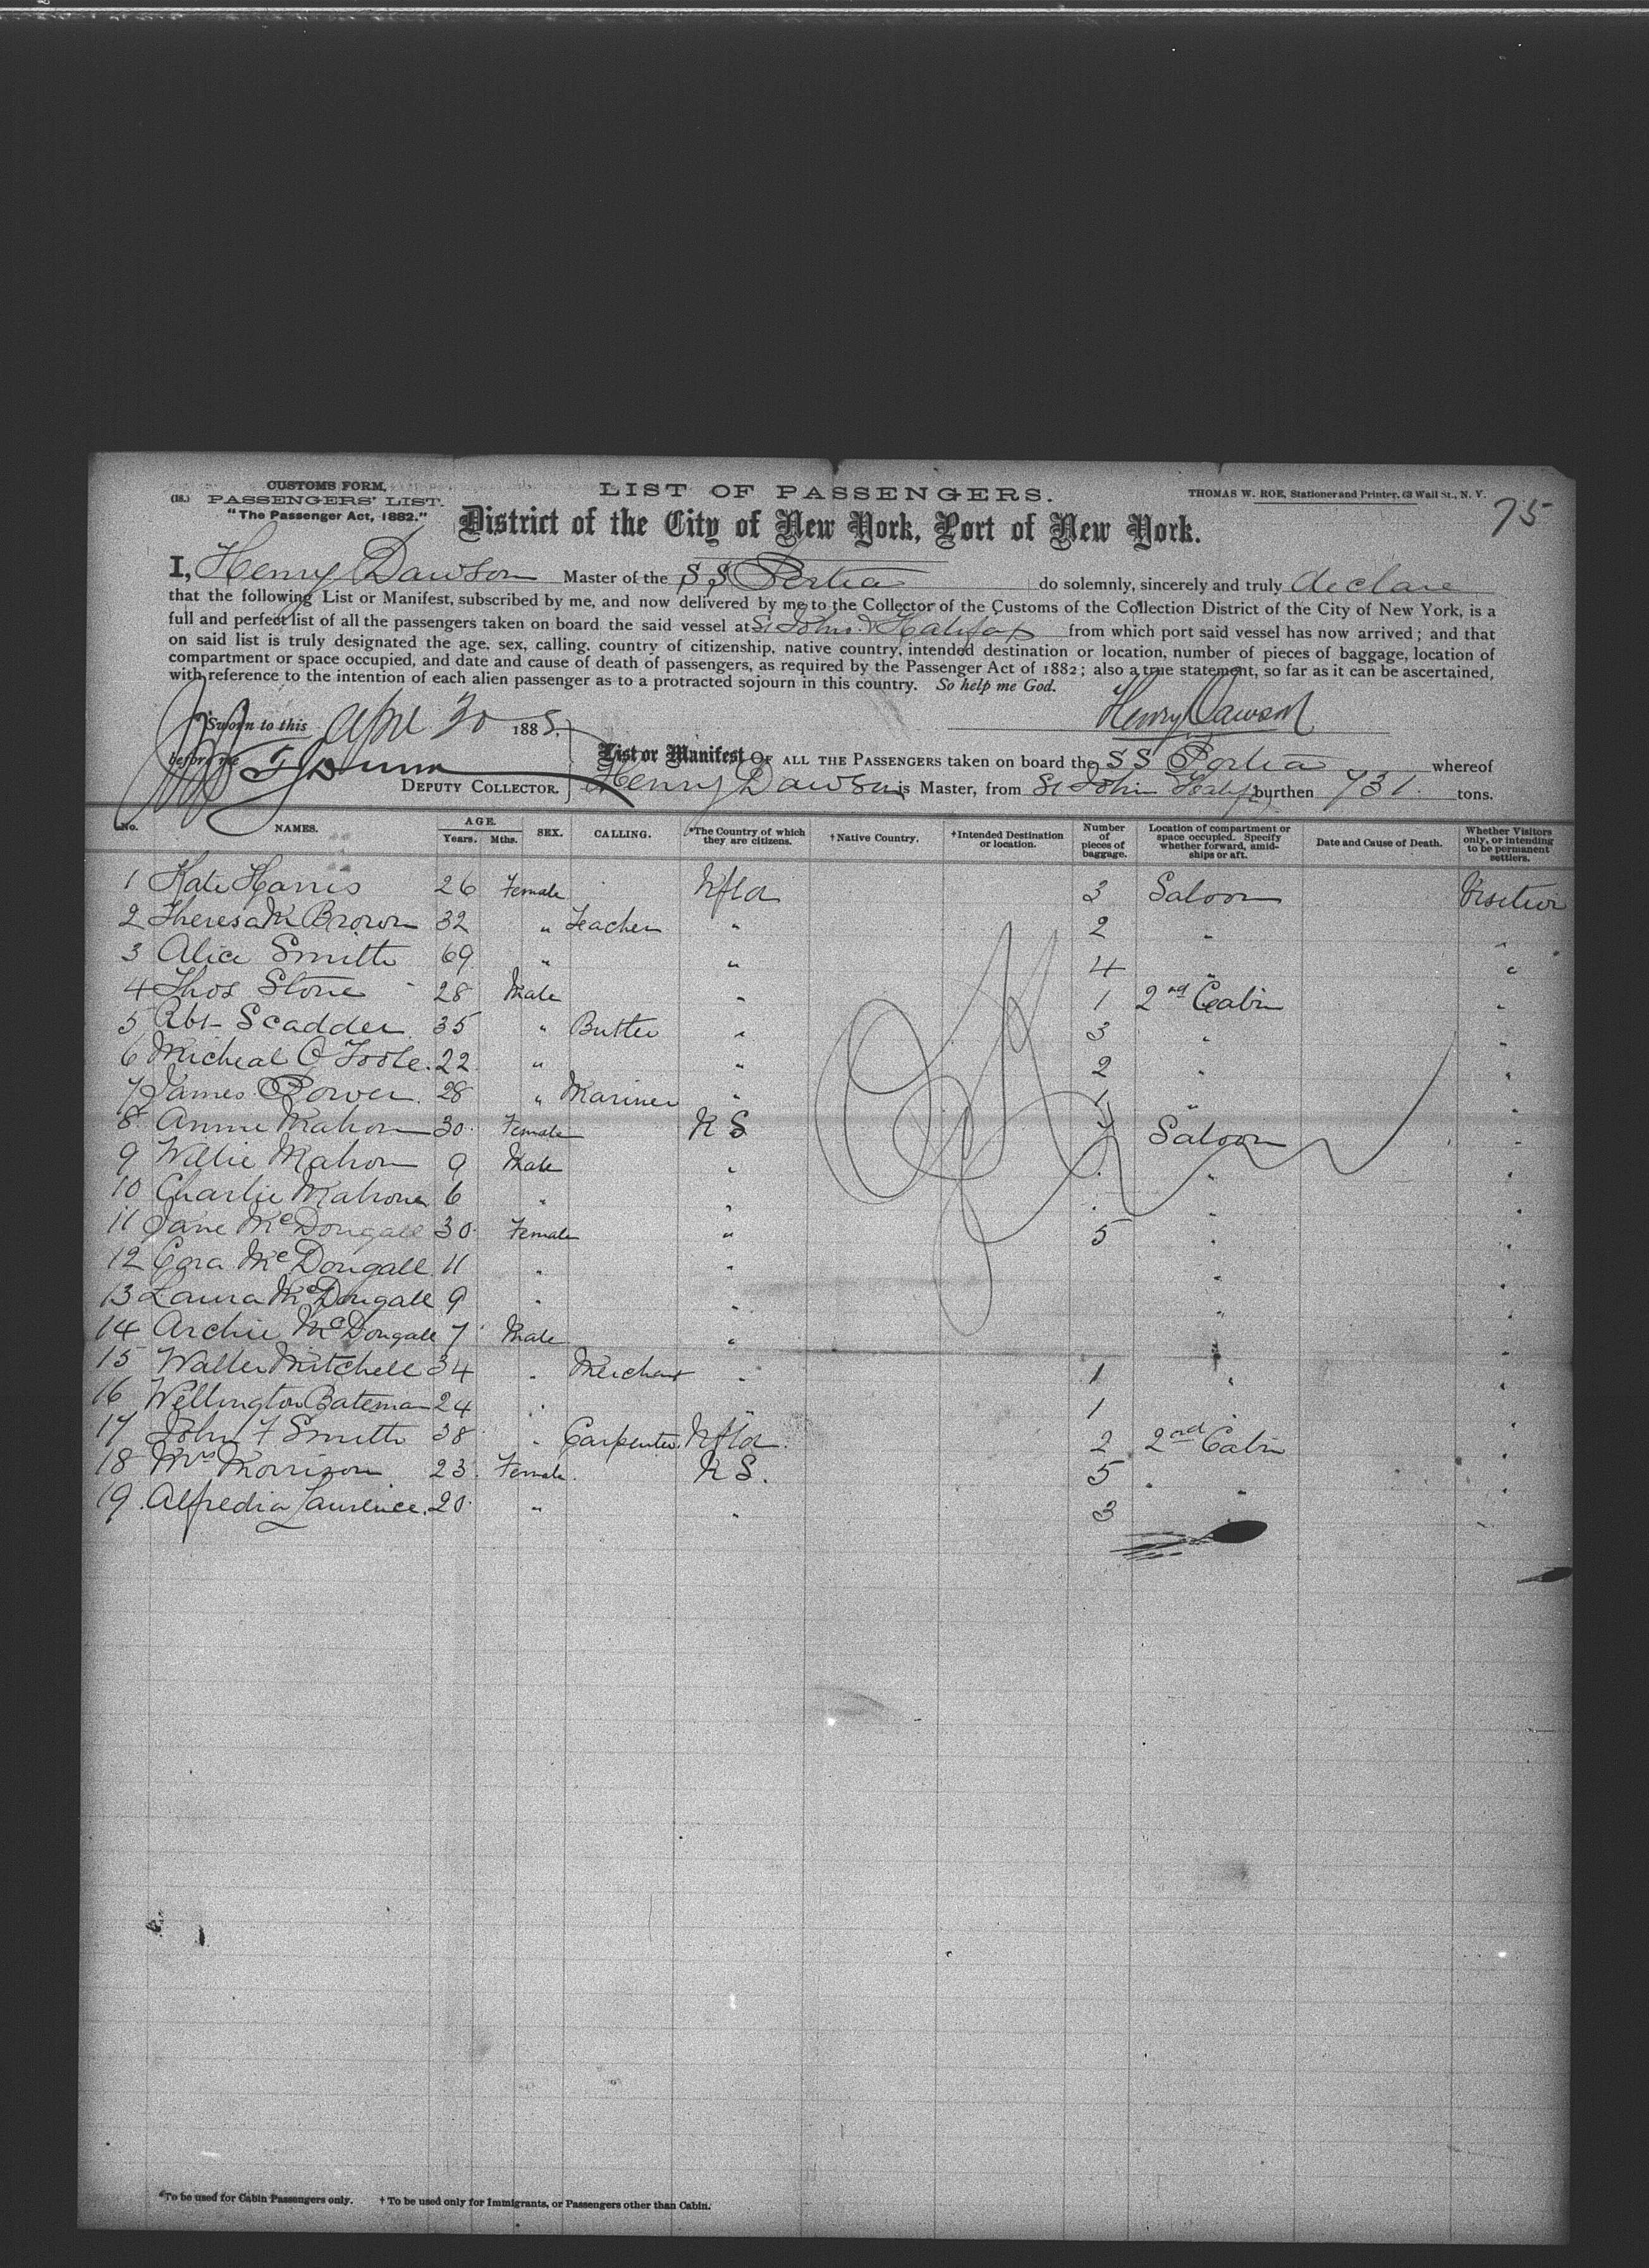 CUSTOMS FORM.
(18.) PASSENGERS' LIST.
"The Passenger Act, 1882."
LIST OF PASSENGERS.
THOMAS W. ROE, Stationer and Printer, 63 Wall St., N. Y.
75
District of the City of New York, Port of New York.
I, Henry Dawson Master of the SS Portia do solemnly, sincerely and truly declare
that the following List or Manifest, subscribed by me, and now delivered by me to the Collector of the Customs of the Collection District of the City of New York, is a
full and perfect list of all the passengers taken on board the said vessel at St Johns & Halifax from which port said vessel has now arrived; and that
on said list is truly designated the age, sex, calling, country of citizenship, native country, intended destination or location, number of pieces of baggage, location of
compartment or space occupied, and date and cause of death of passengers, as required by the Passenger Act of 1882; also a true statement, so far as it can be ascertained,
with reference to the intention of each alien passenger as to a protracted sojourn in this country. So help me God.
Sworn to this April 20 1885. Henry Dawson
before me
List or Manifest OF ALL THE PASSENGERS taken on board the SS Portia whereof
DEPUTY COLLECTOR. Henry Dawson is Master, from St John Halifx burthen 731. tons.
No. NAMES. AGE. Years. Mths. SEX. CALLING. *The Country of which they are citizens. †Native Country. †Intended Destination or location. Number of pieces of baggage. Location of compartment or space occupied. Specify whether forward, amidships or aft. Date and Cause of Death. Whether Visitors only, or intending to be permanent settlers.
1 Kate Harris 26 Female Nfld 3 Saloon Visitor
2 Theresa M Brown 32 " Teacher " 2 " "
3 Alice Smith 69 " " 4 " "
4 Thos Stone 28 Male " 1 2nd Cabin "
5 Rbt Scadden 35 " Butler " 3 " "
6 Micheal O Toole. 22 " " 2 " "
7 James Power. 28 " Mariner " 1 " "
8 Annie Mahon 30 Female N S 7 Saloon "
9 Willie Mahon 9 Male " " " "
10 Charlie Mahone 6 " " " " "
11 Jane McDougall 30 Female " 5 " "
12 Cora McDougall 11 " " " "
13 Laura McDougall 9 " " " "
14 Archie McDougall 7 Male " " "
15 Walter Mitchell 34 " Merchant " 1 " "
16 Wellington Bateman 24 " " 1 " "
17 John F Smith 38 " Carpenter Nfld. 2 2nd Cabin "
18 Mrs Morrison 23 Female N S. 5 " " "
19 Alfredia Laurence. 20 " " 3 "
*To be used for Cabin Passengers only. † To be used only for Immigrants, or Passengers other than Cabin.